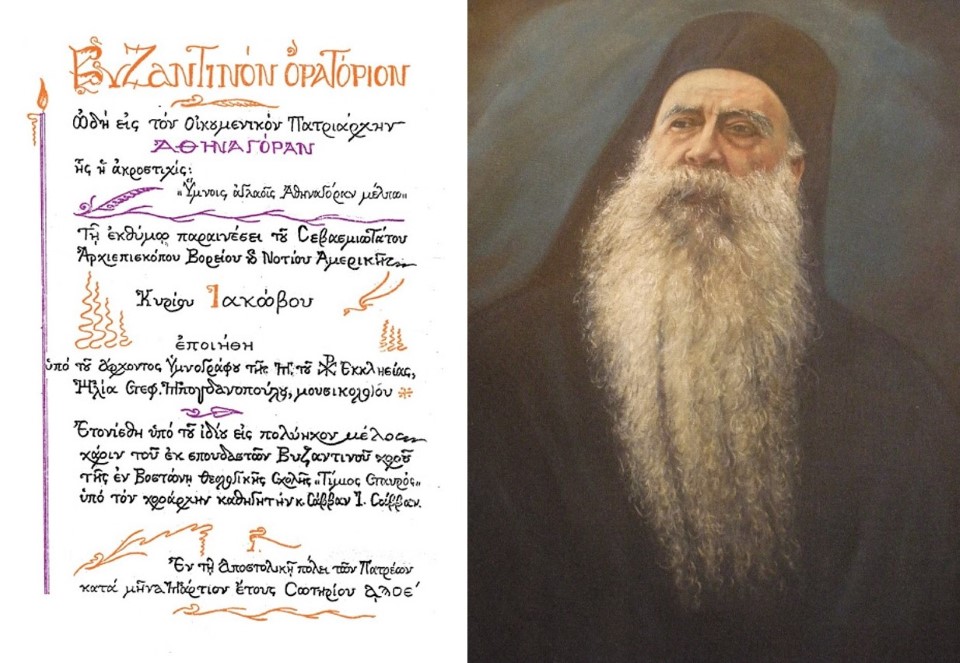 Βυζαντινὸν ὁρατόριον
ᾠδὴ εἰς τὸν Οἰκουμενικὸν Πατριάρχην
ἈΘΗΝΑΓΌΡΑΝ
ἧς ἡ ἀκροστιχίς:
„Ὕμνοις ἀγλαοῖς Ἀθηναγόραν μέλπω"
Τῇ ἐκθύμῳ παραινέσει τοῦ Σεβασμιωτάτου
Ἀρχιεπισκόπου Βορείου & Νοτίου Ἀμερικῆς
Κυρίου Ἰακώβου
ἐποιήθη
ὑπὸ τοῦ ἄρχοντος Ὑμνογράφου τῆς Μ. τοῦ Ἐκκλησίας,
Ἠλία Στεφ. Μπογδανοπούλου, μουσικολόγου
Ἐτονίσθη ὑπὸ τοῦ ἰδίου εἰς πολύηχον μέλος
χάριν τοῦ ἐκ σπουδαστῶν Βυζαντινοῦ χοροῦ
τῆς ἐν Βοστώνῃ Θεολογικῆς Σχολῆς „Τίμιος Σταυρός"
ὑπὸ τὸν χοράρχην καθηγητὴν κ. Σάββαν Ι. Σάββαν.
Ἐν τῇ Ἀποστολικῇ πόλει τῶν Πατρέων
κατὰ μῆνα Μάρτιον ἔτους Σωτηρίου ͵αϡοε΄